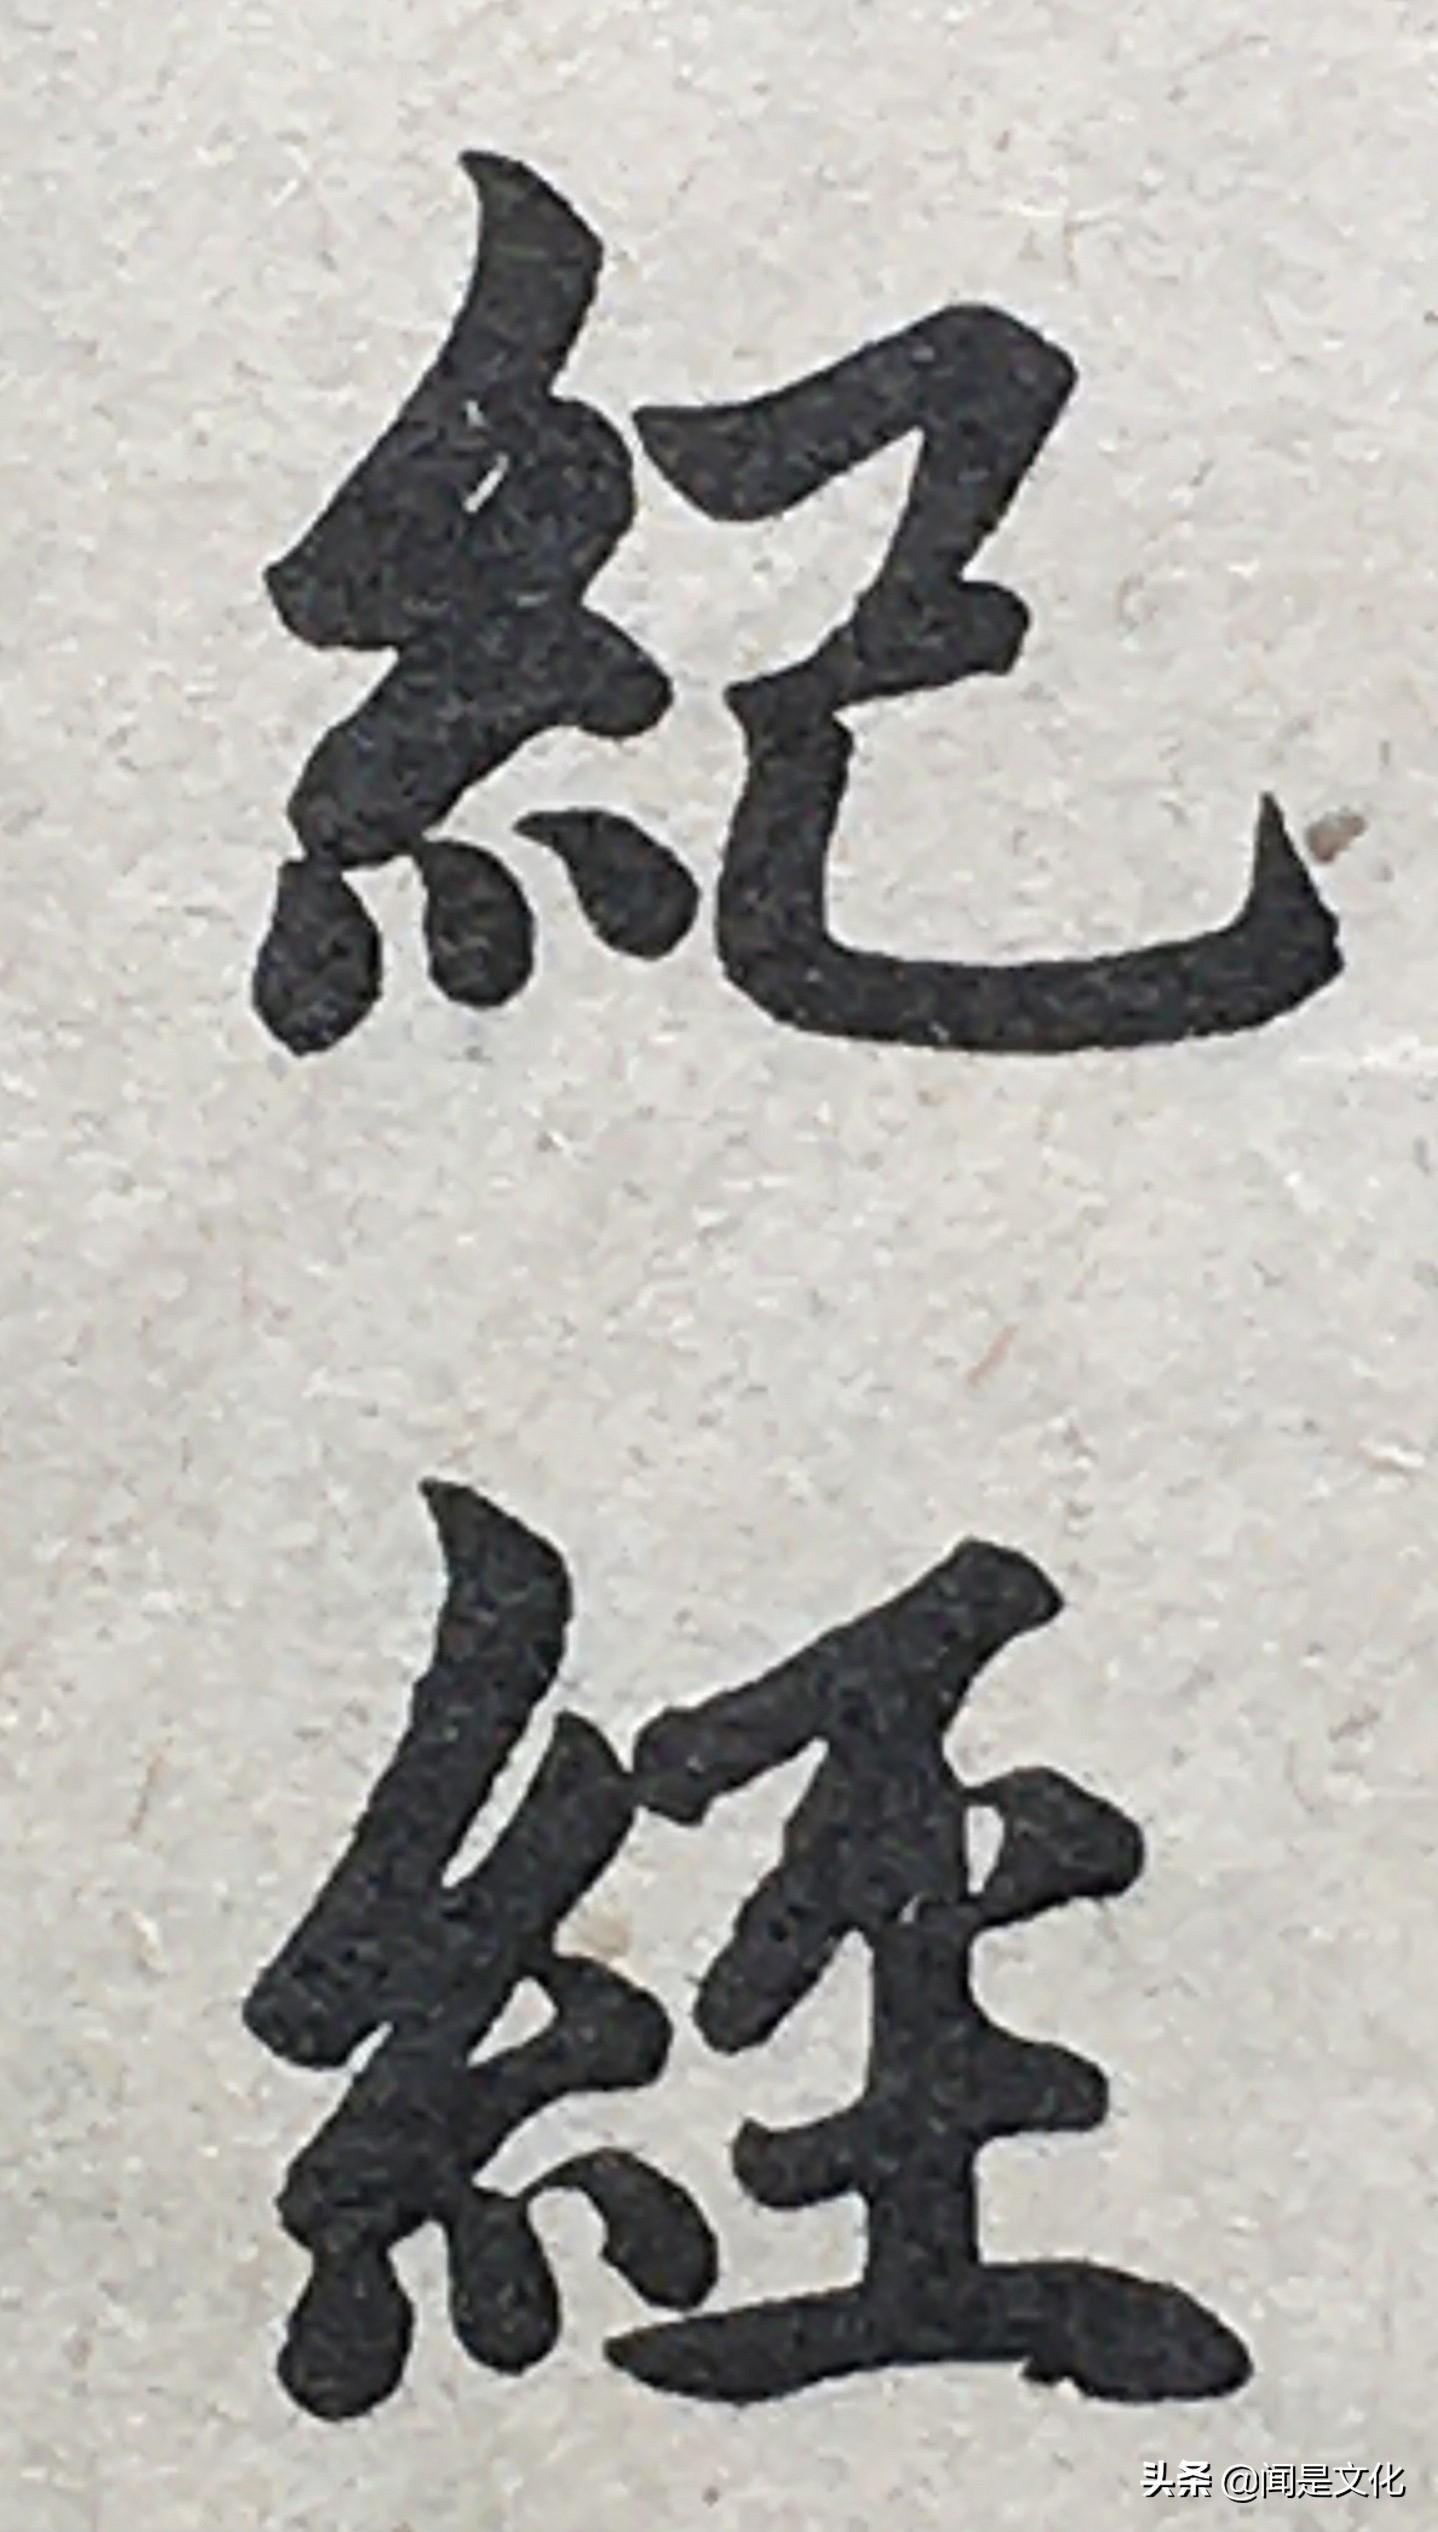 紀
経
头条 @闻是文化